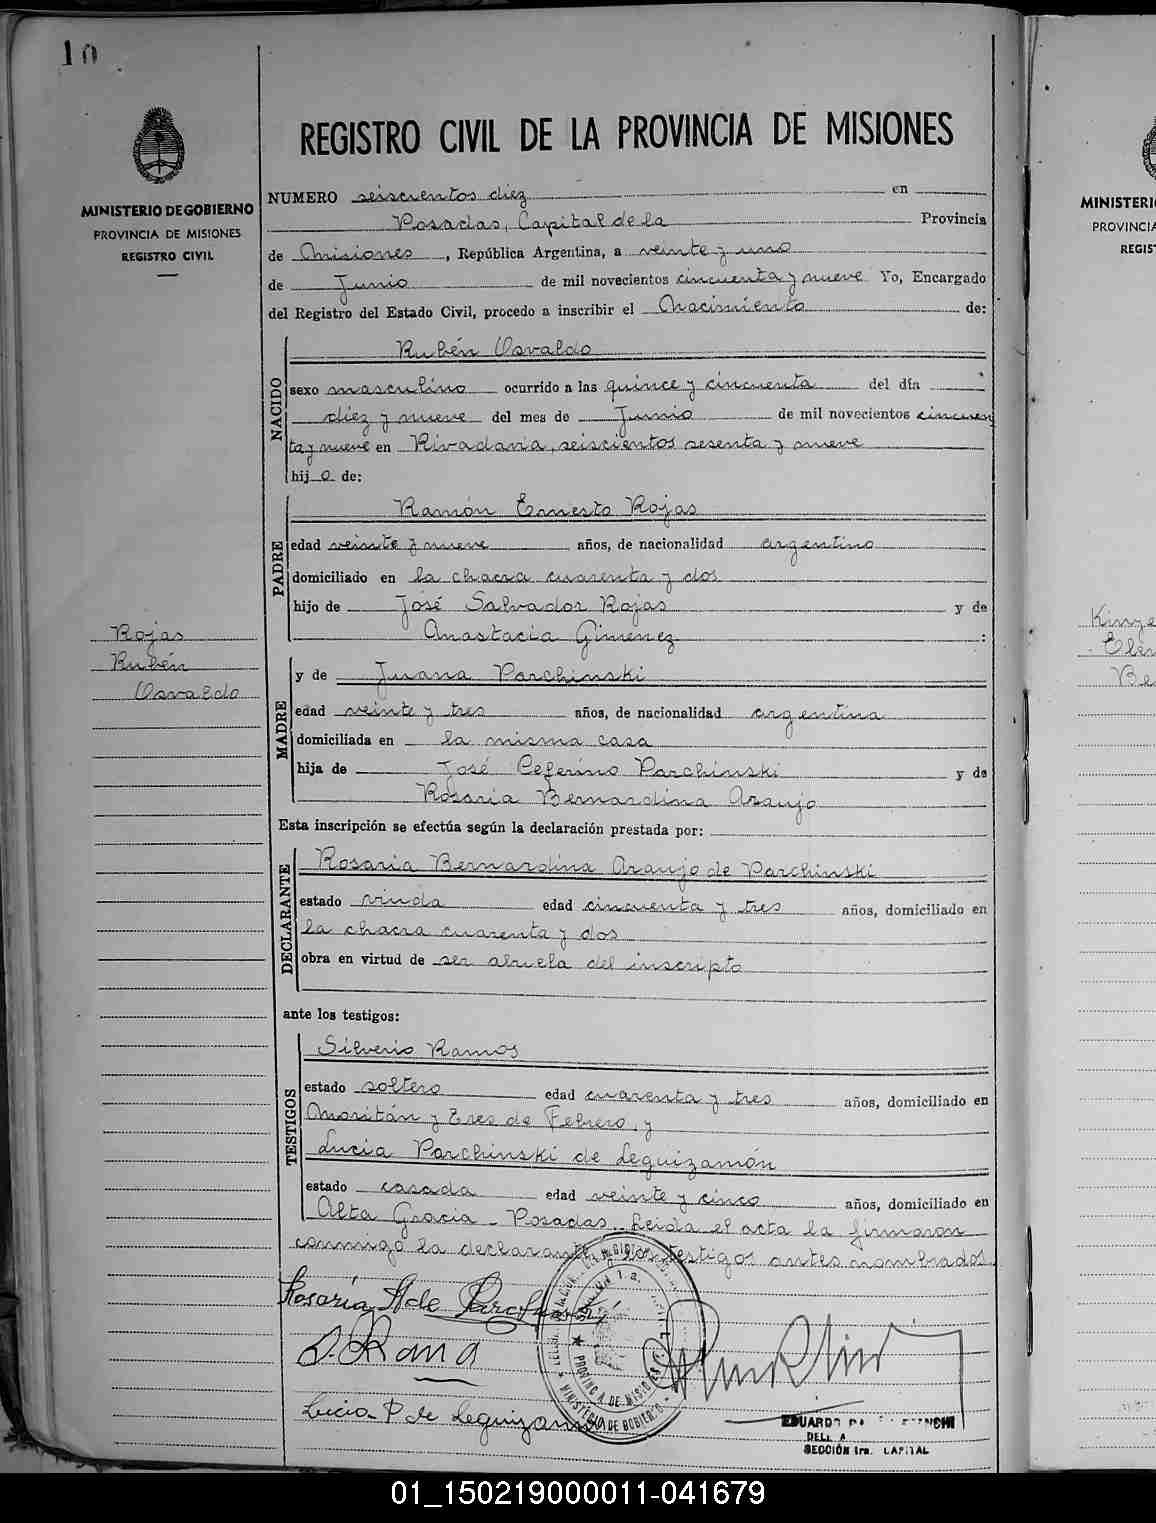 10
MINISTERIO DE GOBIERNO
PROVINCIA DE MISIONES
REGISTRO CIVIL
Rojas
Rubén
Osvaldo
REGISTRO CIVIL DE LA PROVINCIA DE MISIONES
NUMERO seiscientos diez en
Posadas, Capital de la Provincia
de Misiones, República Argentina, a veinte y uno
de Junio de mil novecientos cincuenta y nueve Yo, Encargado
del Registro del Estado Civil, procedo a inscribir el Nacimiento de:
NACIDO
Rubén Osvaldo
sexo masculino ocurrido a las quince y cincuenta del día
diez y nueve del mes de Junio de mil novecientos cincuen
ta y nueve en Rivadavia, seiscientos sesenta y nueve
hijo de:
PADRE
Ramón Ernesto Rojas
edad veinte y nueve años, de nacionalidad argentino
domiciliado en la chacra cuarenta y dos
hijo de José Salvador Rojas y de
Anastacia Gimenez :
MADRE
y de Juana Parchinski
edad veinte y tres años, de nacionalidad argentina
domiciliada en la misma casa
hija de José Ceferino Parchinski y de
Rosaria Bernardina Araujo
Esta inscripción se efectúa según la declaración prestada por:
DECLARANTE
Rosaria Bernardina Araujo de Parchinski
estado viuda edad cincuenta y tres años, domiciliado en
la chacra cuarenta y dos
obra en virtud de ser abuela del inscripto
ante los testigos:
TESTIGOS
Silverio Ramos
estado soltero edad cuarenta y tres años, domiciliado en
Moritán y Tres de Febrero, y
Lucia Parchinski de Leguizamón
estado casada edad veinte y cinco años, domiciliado en
Alta Gracia - Posadas. Leida el acta la firmaron
conmigo la declarante y los testigos antes nombrados.
Rosaria A de Parchinski
Lucia P de Leguizamón
PROVINCIA DE MISIONES
MINISTERIO DE GOBIERNO
EDUARDO
SECCIÓN 1ra. CAPITAL
MINISTERI
PROVINCIA
REGIST
01_150219000011-041679